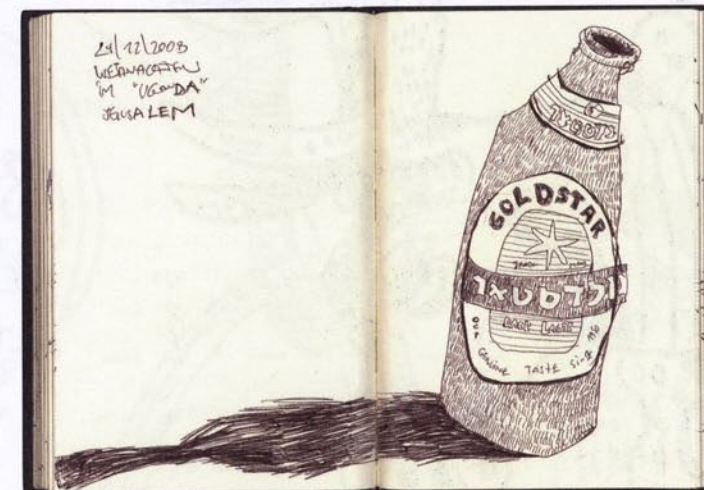 24/12/2008
WEIHNACHTEN
IM "UGANDA"
JERUSALEM
GOLDSTAR
גולדסטאר
DARK LAGER
OUR GENUINE TASTE SINCE